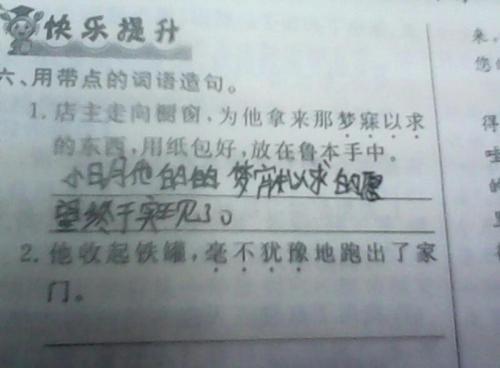 快乐提升
六、用带点的词语造句。
1. 店主走向橱窗,为他拿来那梦寐以求
的东西,用纸包好,放在鲁本手中。
小明他的 梦寐以求的愿
望终于实现了。
2. 他收起铁罐,毫不犹豫地跑出了家
门。
来,
您
得
的